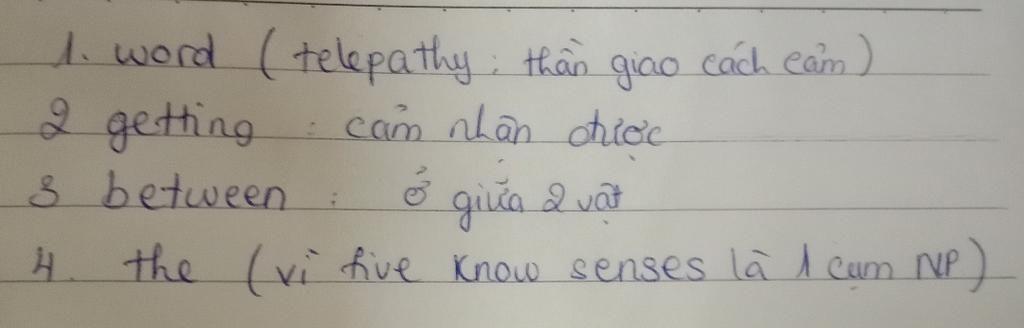 1. word ( telepathy : thần giao cách cảm )
2 getting : cảm nhận được
3 between : ở giữa 2 vật
4. the ( vì five know senses là 1 cụm NP )